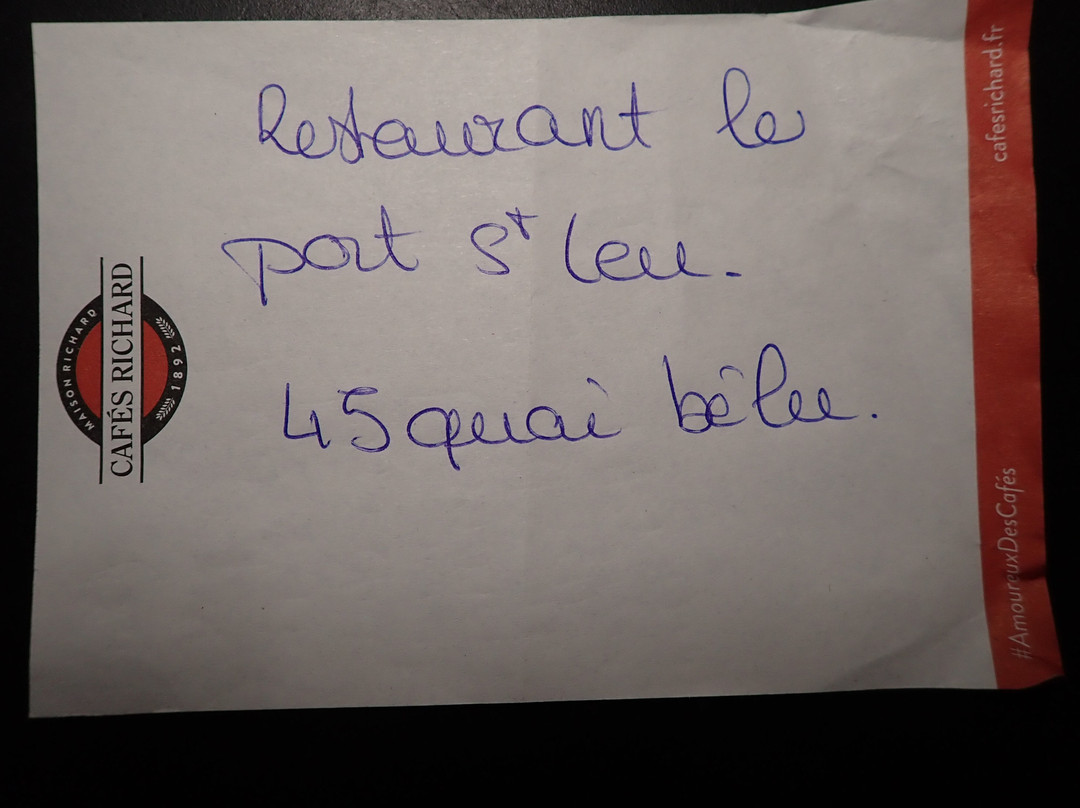 Restaurant le
port St leu.
45 quai bêlu.
CAFÉS RICHARD
MAISON RICHARD
1892
cafesrichard.fr
#AmoureuxDesCafés